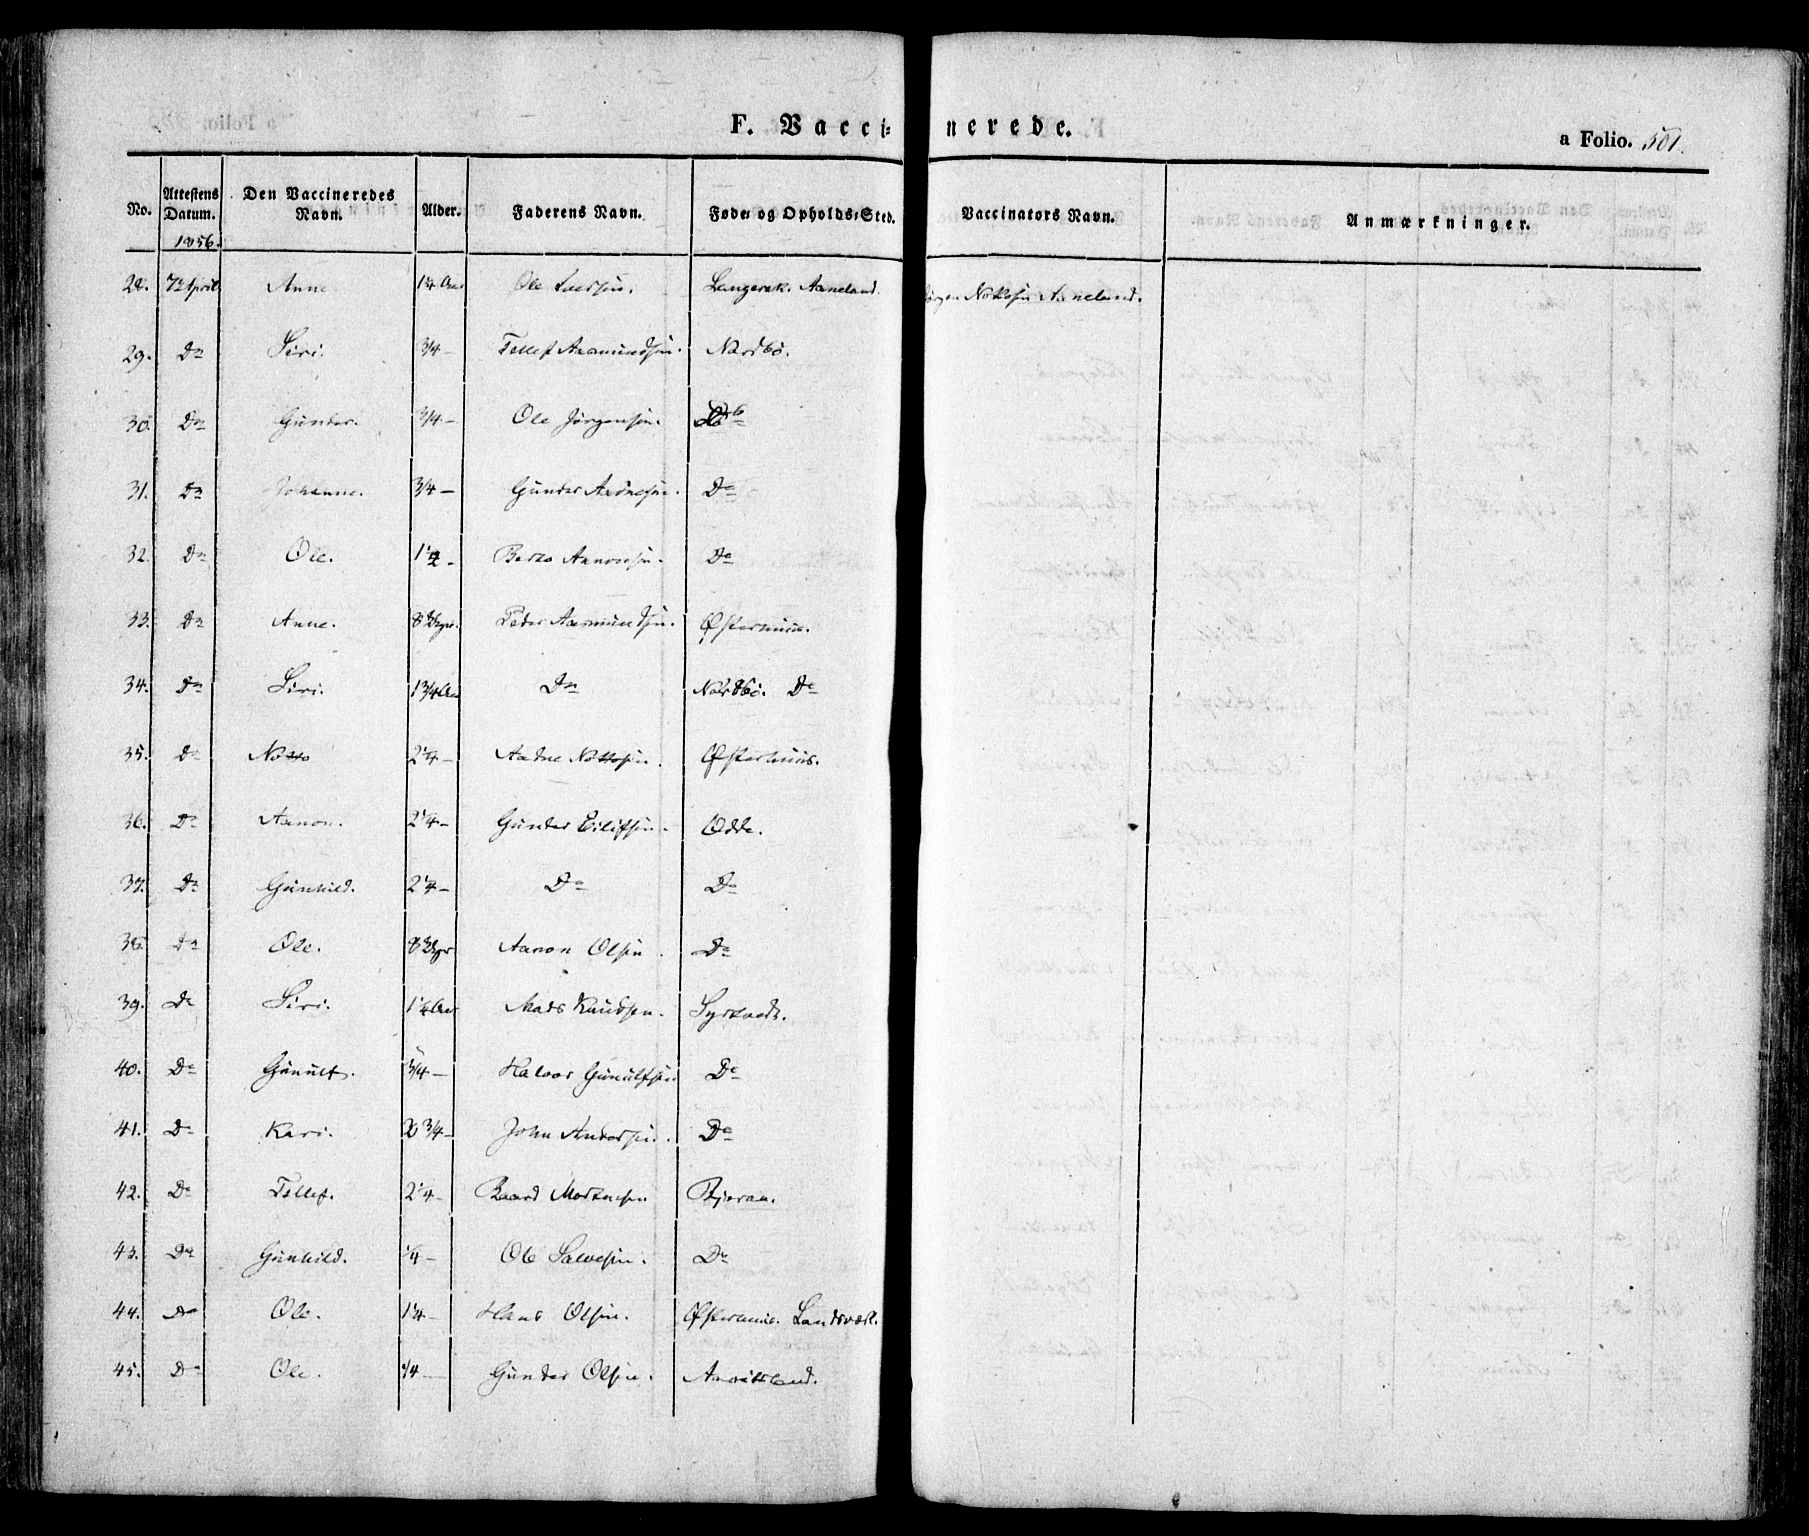 F. Vacci- nerede.
a Folio. 501.
No. Attestens Datum. Den Vaccineredes Navn. Alder. Faderens Navn. Føde- og Opholds-Sted. Vaccinators Navn. Anmærkninger.
1856.
28. 7de April Anne 1 1/4 Aar Ole Langerak. Aaneland. Jörgen Aaneland.
29. Do Siri. 3/4 — Tellef Aasmundsen. Nordbö.
30. Do Gunder. 3/4 — Ole Jörgensen. Do
31. Do Johanne. 3/4 — Gunder Aadnesen. Do
32. Do Ole. 1 1/2 - Aanonsen. Do
33. Do Anne. 8 Uger. Peder Aasmundsen. Østerhuus.
34. Do Siri. 1 3/4 Aar Do Nordbö. Do
35. Do Notto 2 1/4 — Aadne Nottosen. Østerhuus.
36. Do Aanon. 2 1/4 - Gunder Eilifsen. Odde.
37. Do Gunhild. 2 1/4 — Do Do
38. Do Ole. 8 Uger Aanon Olsen. Do
39. Do Siri. 1 1/4 Aar Mads Knudsen. Syrtvedt.
40. Do Gunulf. 3/4 — Halvor Gunulfsen Do
41. Do Kari. 3/4 - John Andersen. Do
42. Do Tellef. 2 1/4 - Baard Mortensen Bjoraa.
43. Do Gunhild. 1/4 - Ole Salvesen. Do
44. Do Ole. 1 1/4 - Hans Olsen. Østerhuus. Landsværk.
45. Do Ole. 1/4 — Gunder Olsen.